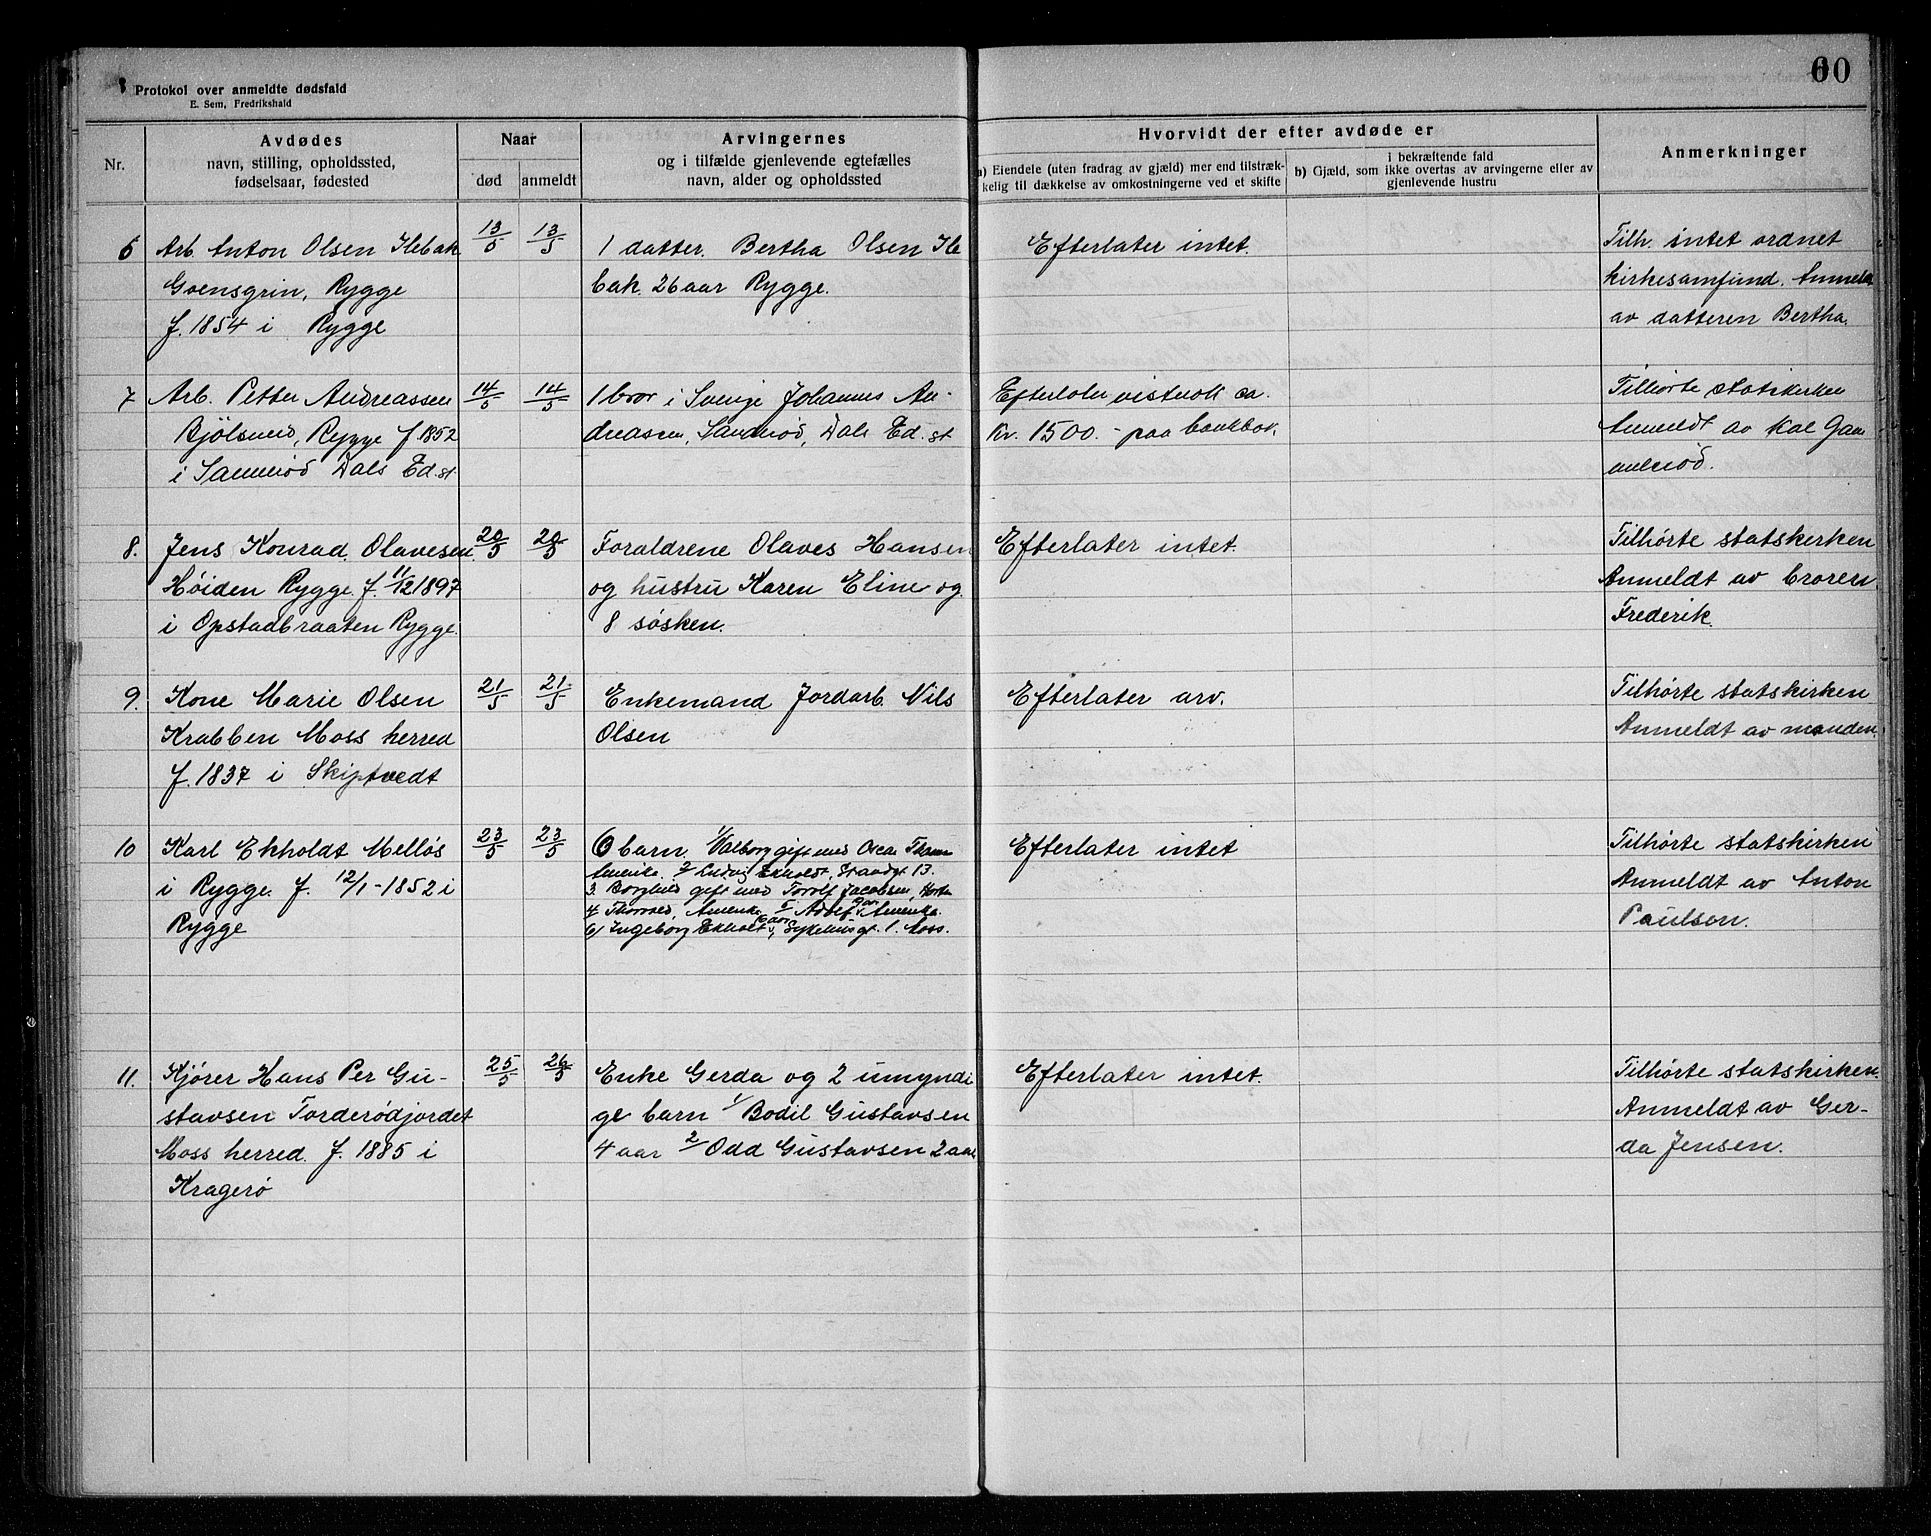 Protokol over anmeldte dødsfald
E. Sem, Fredrikshald
60
Nr.
Avdødes
navn, stilling, opholdssted,
fødselsaar, fødested
Naar
død
anmeldt
Arvingernes
og i tilfælde gjenlevende egtefælles
navn, alder og opholdssted
Hvorvidt der efter avdøde er
a) Eiendele (uten fradrag av gjæld) mer end tilstræk-
kelig til dækkelse av omkostningerne ved et skifte
i bekræftende fald
b) Gjæld, som ikke overtas av arvingerne eller av
gjenlevende hustru
Anmerkninger
6
Arb. Anton Olsen Ilebak
Goensgrin, Rygge
f. 1854 i Rygge
13/5
13/5
1 datter. Bertha Olsen Ile
bak. 26 aar Rygge.
Efterlater intet.
Tilh. intet ordnet
kirkesamfund. Anmeldt
av datteren Bertha.
7
Arb. Petter Andreassen
Bjölsund, Rygge f. 1852
i Dals Ed. st
14/5
14/5
1 bror i Sverige Johannes An-
dreasen, Dals Ed. st
Efterlater vistnok ca.
Kr. 1500.- paa bankbok.
Tilhørte statskirken
Anmeldt av Kal Gam
melrød.
8.
Jens Konrad Olavesen.
Høiden Rygge. f. 11/12 1897
i Opstadbraaten Rygge.
20/5
20/5
Foraldrene Olaves Hansen
og hustru Karen Eline og
8 søsken.
Efterlater intet.
Tilhørte statskirken
Anmeldt av broren
Frederik.
9.
Kone Marie Olsen
Krabben Moss herred
f. 1837 i Skiptvedt
21/5
21/5
Enkemand Jordarb. Nils
Olsen
Efterlater arv.
Tilhørte statskirken
Anmeldt av manden.
10
Karl Ekholdt Melløs
i Rygge. f. 12/1-1852 i
Rygge
23/5
23/5
6 barn. 1/ Valborg gift med Oscar
Amerika. 2/ Ludvig Ekholdt, Strandgt 13.
3. Borghild gift med Torolf Jacobsen,
4. Thorvald, Amerika 5 Adolf, Amerika.
6) Ingeborg Ekholt, Sykehusgt. 1. Moss.
Efterlater intet
Tilhørte statskirken
Anmeldt av Anton
Paulsen.
11.
Kjører Hans Per Gu-
stavsen Torderødjordet
Moss herred. f. 1885 i
Kragerø
25/5
26/5
Enke Gerda og 2 umyndi
ge barn 1/ Bodil Gustavsen
4 aar 2/ Odd Gustavsen 2 aar
Efterlater intet.
Tilhørte statskirken.
Anmeldt av Ger-
da Jensen.